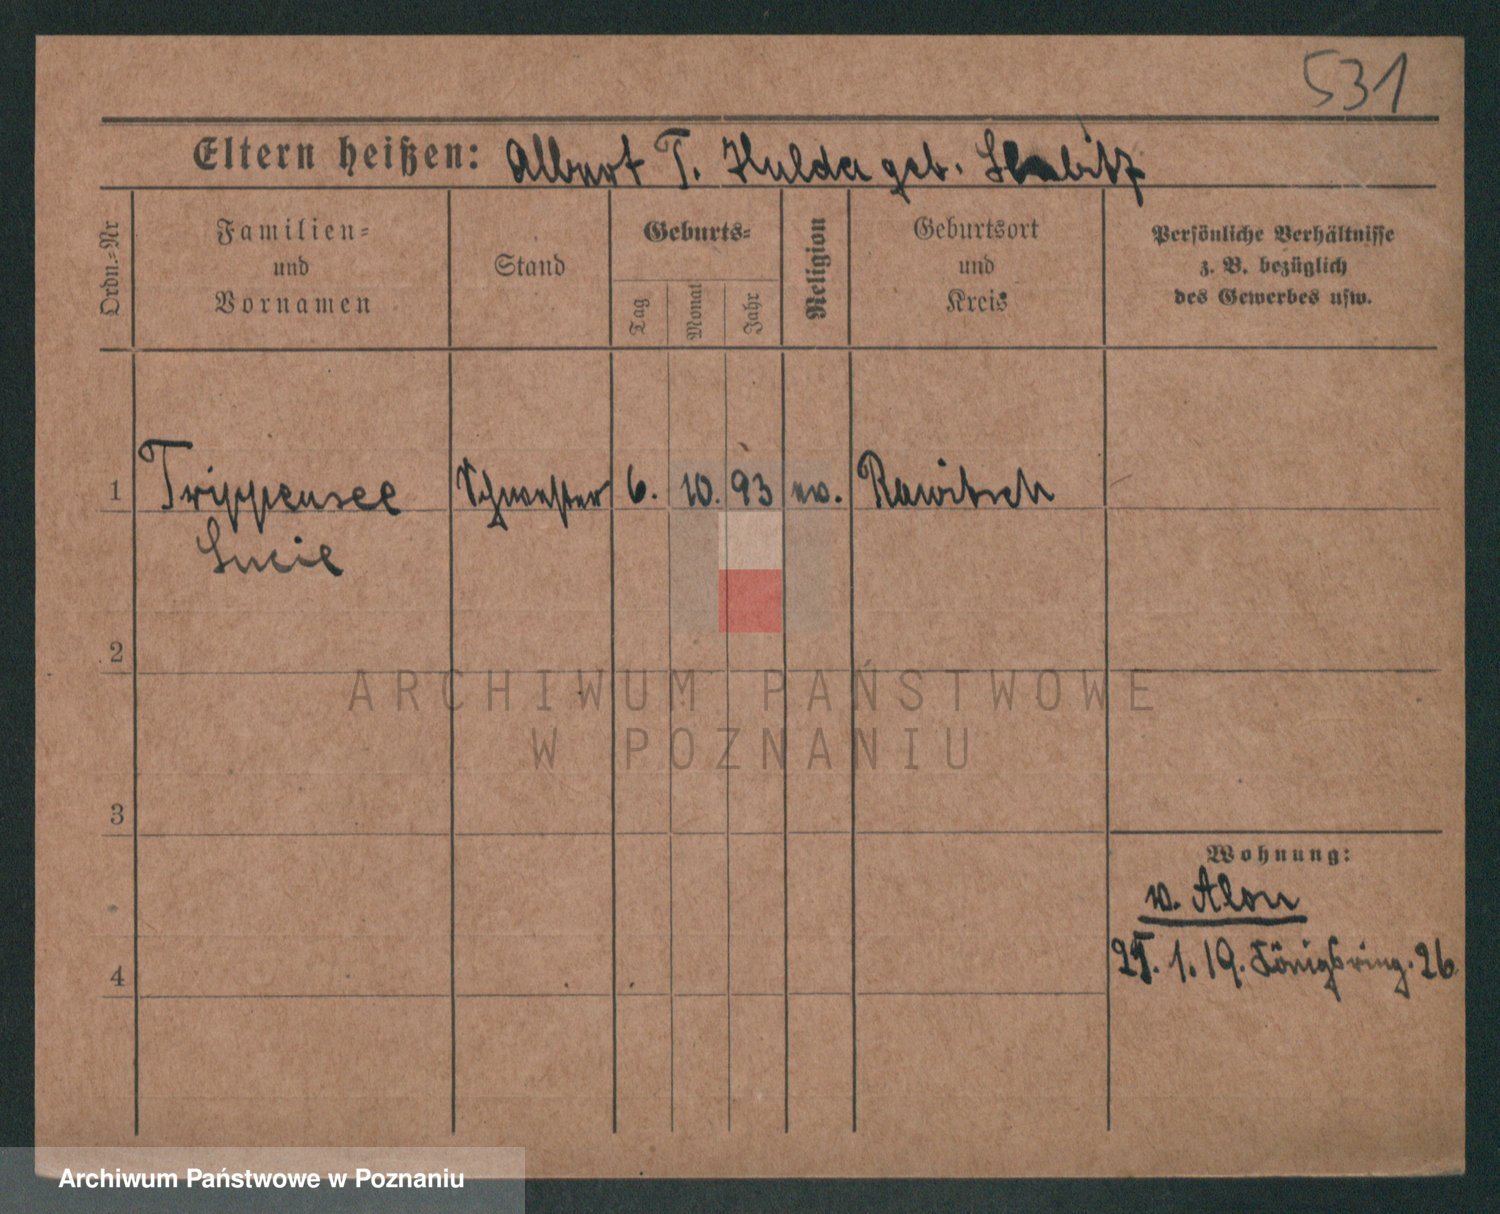 531
Eltern heißen: Albert T. Hulda geb.
Ordn.=Nr
Familien=
und
Vornamen
Stand
Geburts=
Tag
Monat
Jahr
Religion
Geburtsort
und
Kreis
Persönliche Verhältnisse
z. B. bezüglich
des Gewerbes usw.
1 Trippensee Schwester 6. 10. 93 ev. Rawitsch
Lucie
2
ARCHIWUM PAŃSTWOWE
W POZNANIU
3
Wohnung:
v.
1.19. Königsring. 26
4
Archiwum Państwowe w Poznaniu